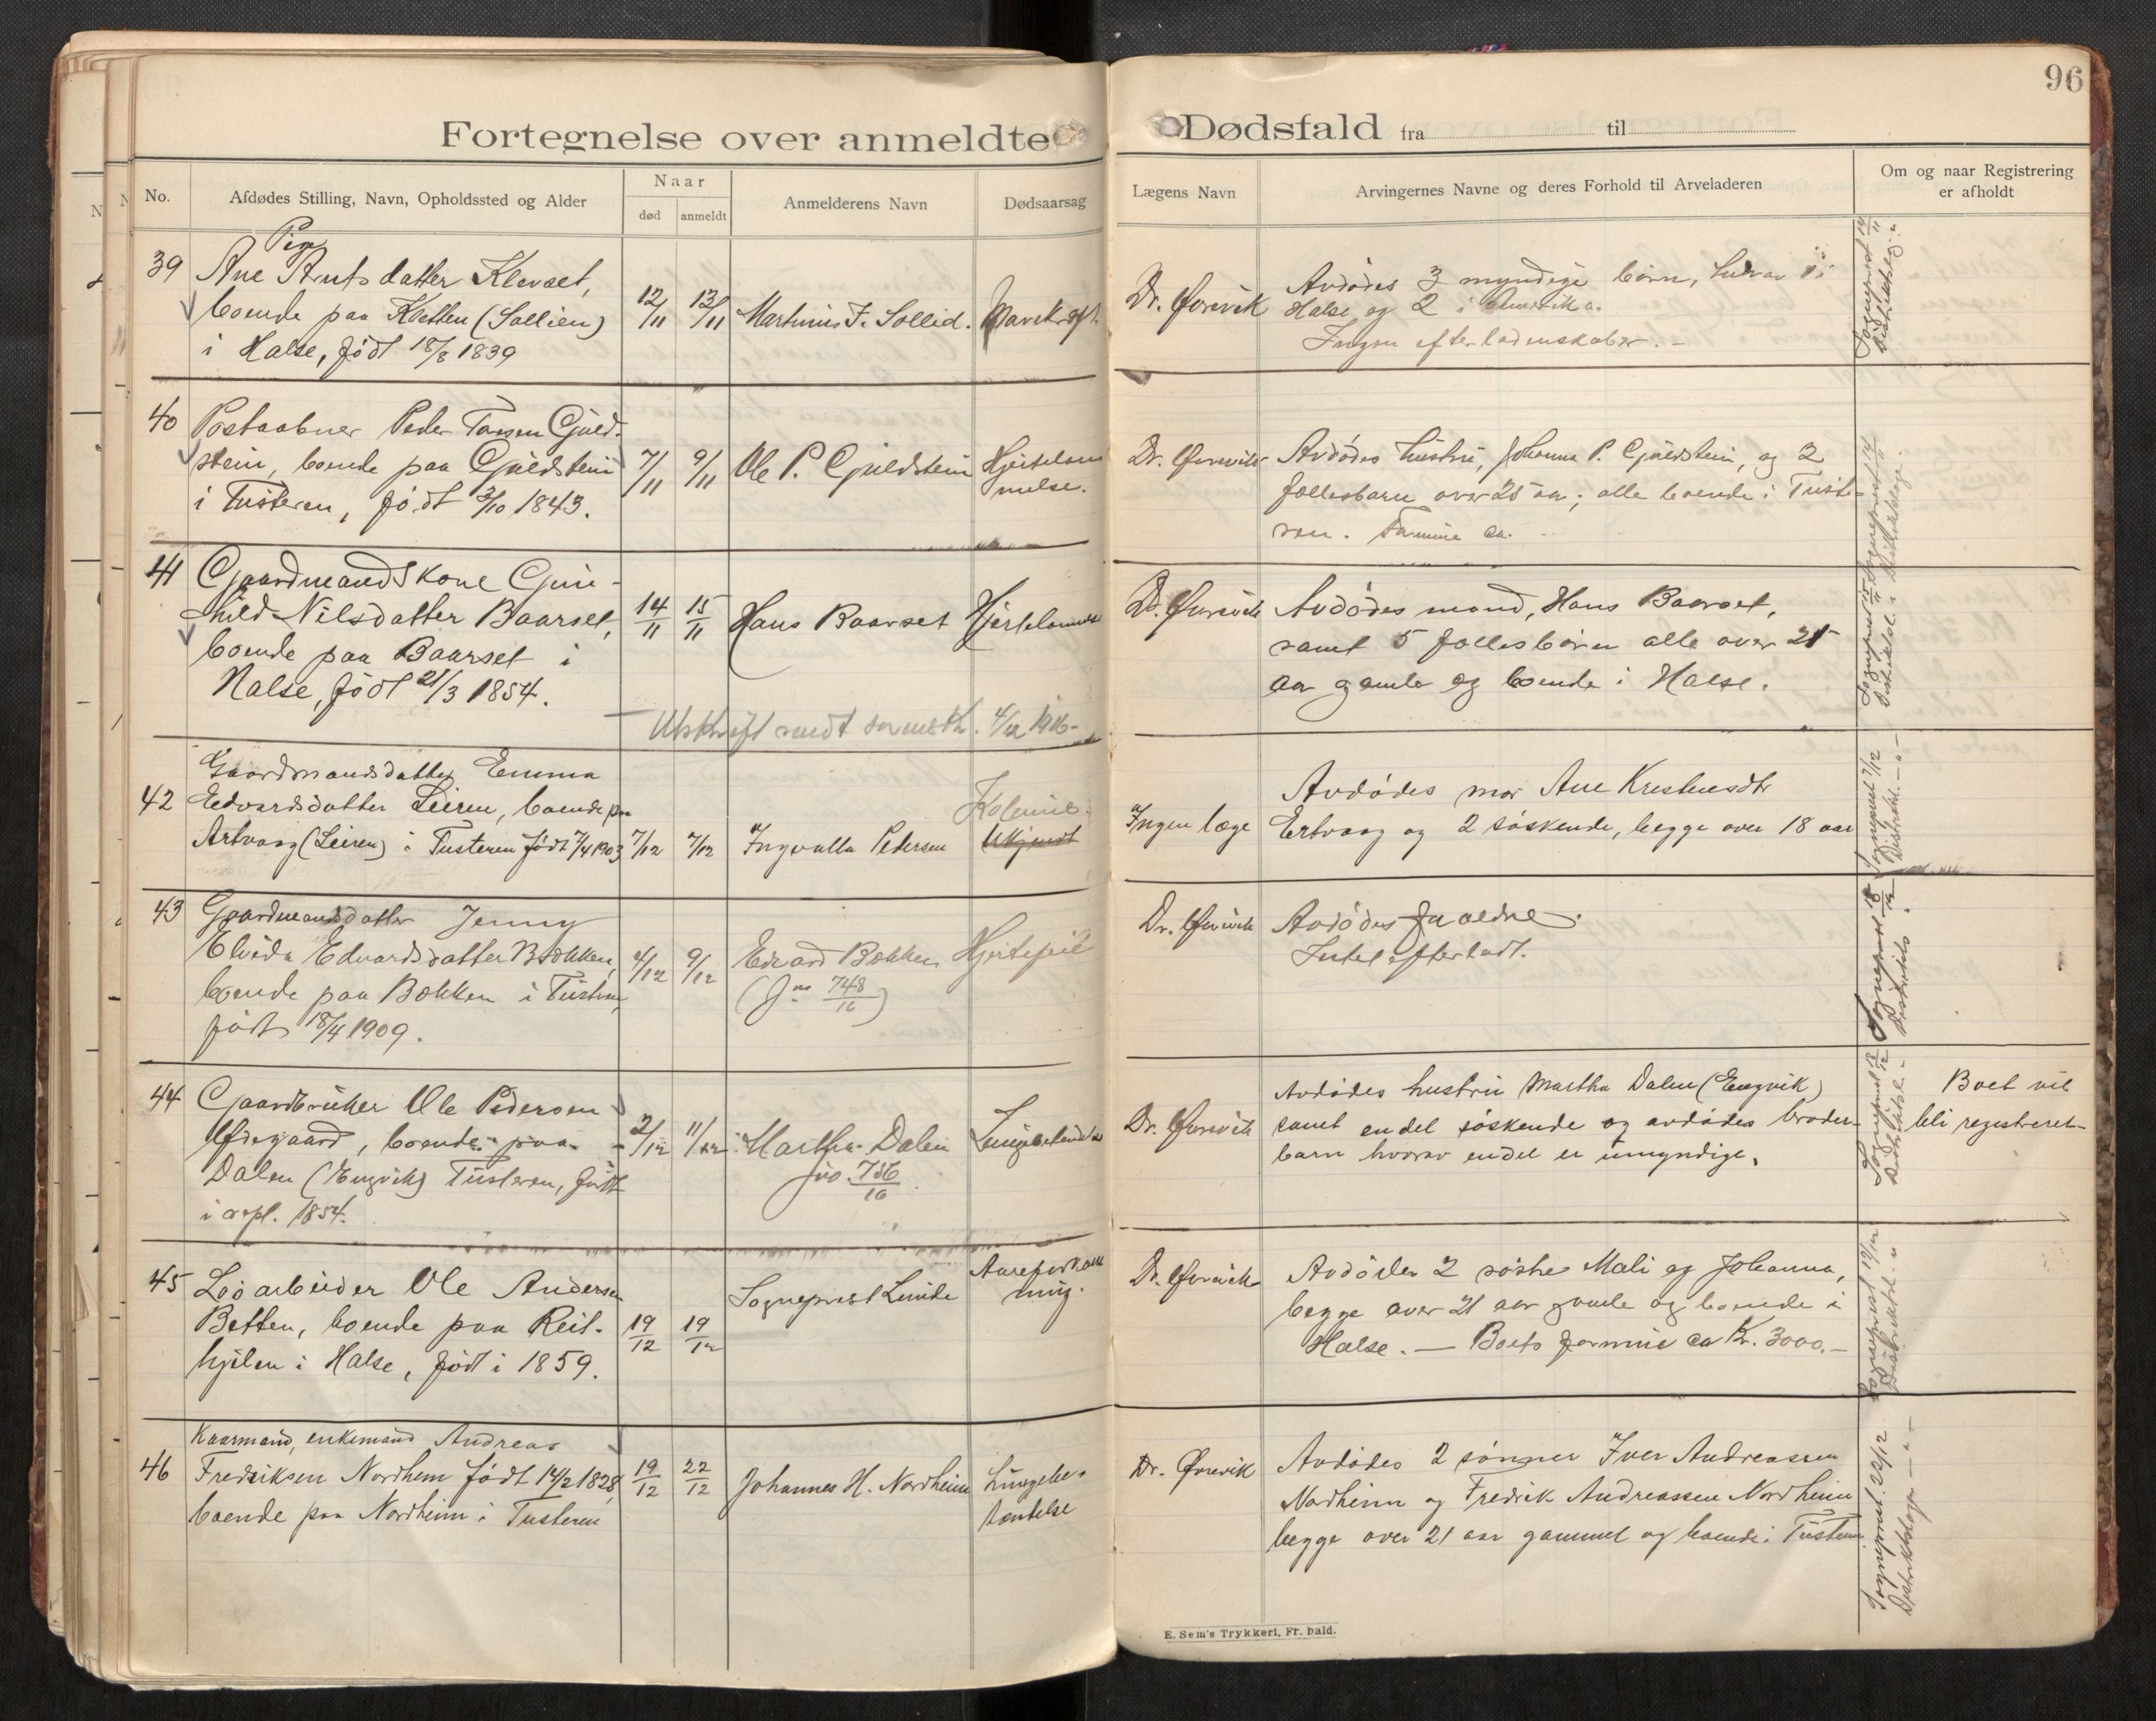 96
Fortegnelse over anmeldte Dødsfald fra til
No.
Afdødes Stilling, Navn, Opholdssted og Alder
Naar
død
anmeldt
Anmelderens Navn
Dødsaarsag
Lægens Navn
Arvingernes Navne og deres Forhold til Arveladeren
Om og naar Registrering
er afholdt
39
Pige
Ane Knutsdatter Klevset,
boende paa Kletten (Sollien)
i Halse, født 18/8 1839
12/11
13/11
Martinus F. Sollid.
Dr. Øvrevik
Avdødes 3 myndige børn, hvorav 1 i
Halse og 2 i Amerika.
Ingen efterladenskaber. -
Sogneprest 14/11
40
Postaabner Peder Larsen Gjuld-
stein, boende paa Gjuldstein
i Tusteren, født 3/10 1843.
7/11
9/11
Ole P. Gjuldstein
Hjertelam
melse.
Dr. Øvrevik
Avdødes hustru, Johanna P. Gjuldstein, og 2
fællesbarn over 25 aar; alle boende i Tuste-
ren. Formue ca.
Sogneprest
41
Gaardmandskone Gun-
hild Nilsdatter Baarset,
boende paa Baarset i
Halse, født 21/3 1854.
14/11
15/11
Hans Baarset
Hjertelammelse
Utskrift sendt sorenskr. 4/12 1916-
Dr. Øvrevik
Avdødes mand, Hans Baarset,
samt 5 fællesbörn alle over 21
aar gamle og boende i Halse.
Sogneprest 15/11
42
Gaardmandsdatter Emma
Edvardsdatter Leiren, boende paa
Artvaag (Leiren) i Tusteren født 7/4 1903
7/12
7/12
Ingvalla Pedersen
Ukjendt
Ingen læge
Avdødes mor Ane Kristensdtr
Ertvaag og 2 søskende, begge over 18 aar
Sogneprest 7/12
Distrikt.
43
Gaardmandsdatter Jenny
Elvida Edvardsdatter Bækken,
boende paa Bækken i Tusteren,
født 18/4 1909.
4/12
9/12
Edvard Bækken
(Jno 748/16)
Hjertefeil
Dr. Øvrevik
Avdødes forældre.
Intet efterladt.
Sogneprest 18/12
44
Gaardbruker Ole Pedersen
Ødegaard, boende paa
Dalen (Engvik) Tusteren, født
i april. 1854.
2/12
11/12
Martha Dalen
Jno. 756/16
Lungebetændelse
Dr. Øvrevik
Avdødes hustru Martha Dalen (Engvik)
samt endel søskende og avdødes broder-
barn hvorav endel er umyndige.
Sogneprest 18/12
Boet vil
bli registreret-
45
Løsarbeider Ole Andersen
Betten, boende paa Reit-
hjilen i Halse, født i 1859.
19/12
19/12
Sogneprest Lunde
Aareforkalk
ning.
Dr. Øvrevik
Avdødes 2 søstre Mali og Johanna,
begge over 21 aar gamle og boende i
Halse. — Boets formue ca Kr. 3000.-
Sogneprest 19/12
46
Kaarmand, enkemand Andreas
Fredriksen Nordheim født 14/2 1828,
boende paa Nordheim i Tusteren
19/12
22/12
Johannes H. Nordheim
Lungebe-
tændelse
Dr. Øvrevik
Avdødes 2 sønner Iver Andreassen
Nordheim og Fredrik Andreassen Nordheim
begge over 21 aar gammel og boende i Tusteren
Sogneprest. 22/12
Distriktslægen
E. Sem's Trykkeri, Fr. hald.